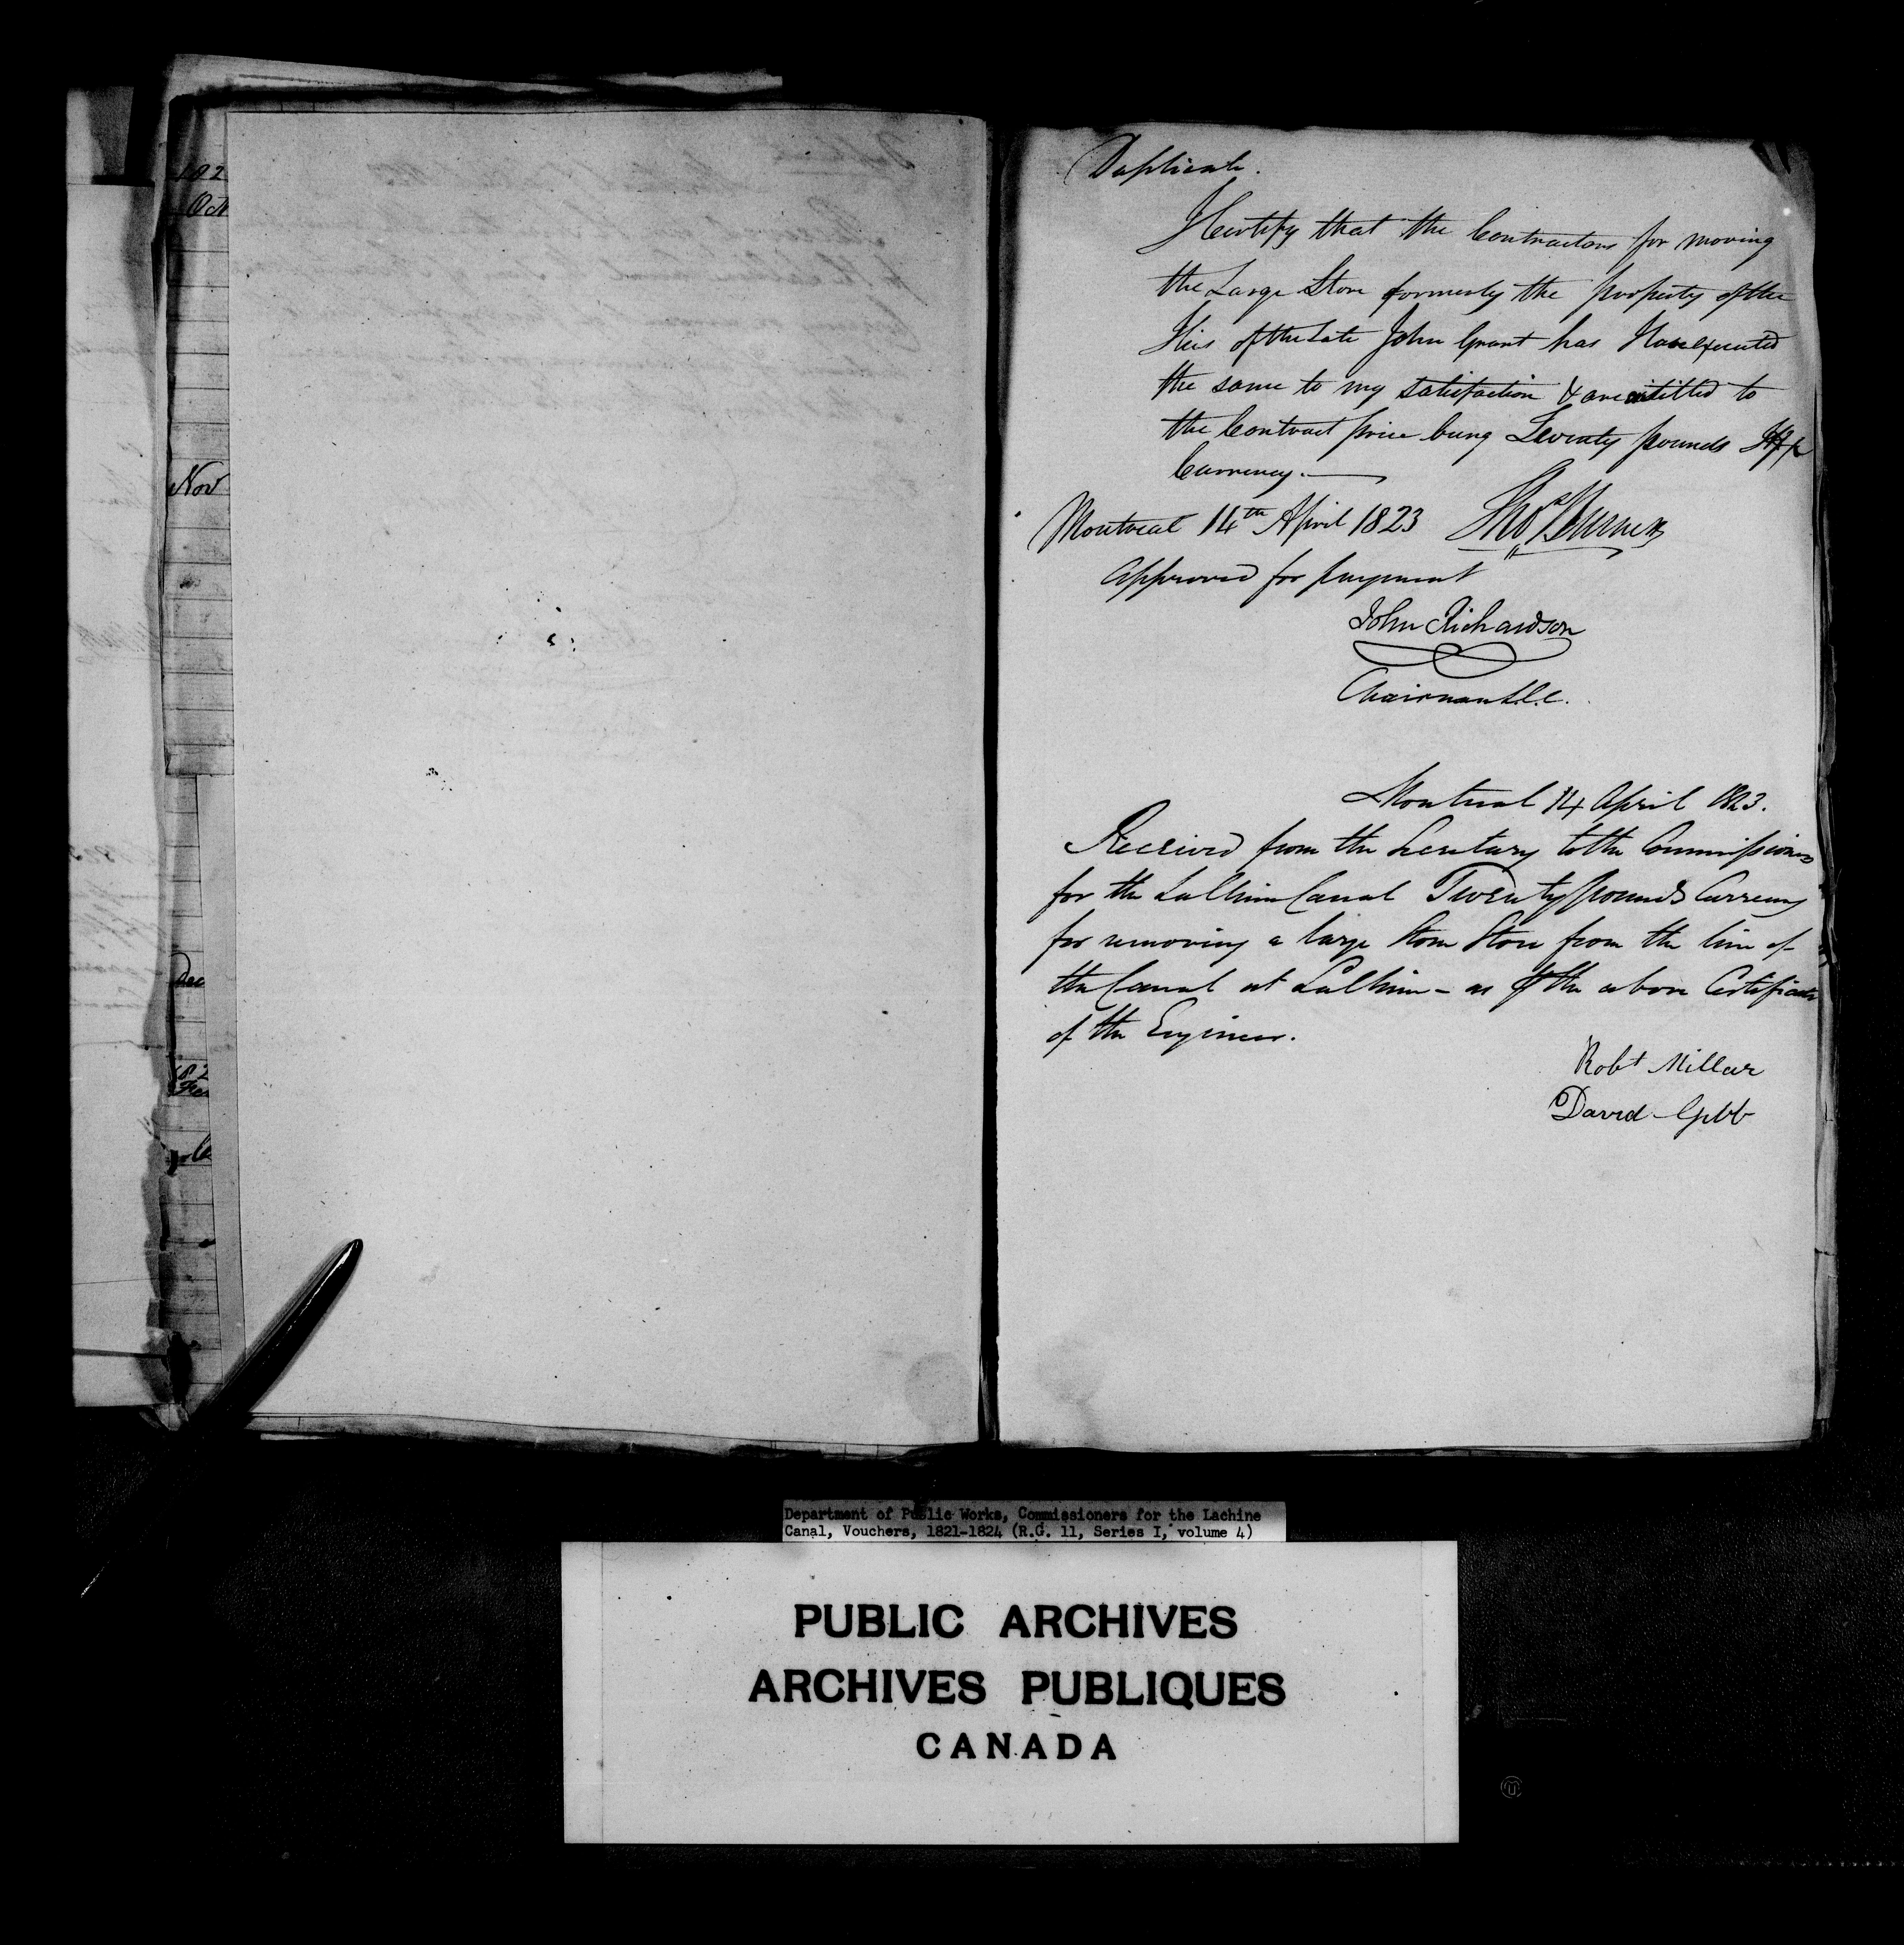 182
Oct
Nov
Dec
182
Duplicate.
I Certify that the Contractors for moving
the Large Store formerly the property of the
Heirs of the Late John Grant has
the same to my satisfaction & are entitled to
the Contract price being Seventy pounds
Currency.
Montreal 14th April 1823 Thos Burnett
Approved for payment
John Richardson
Chairman L.C.C.
Montreal 14 April 1823.
Received from the Secretary to the Commissioners
for the LaChine Canal Twenty pounds Currency
for removing a large Stone Store from the line of
the Canal at LaChine - as the above Certificate
of the Engineer.
Robt Millar
David Gibb
Department of Public Works, Commissioners for the Lachine
Canal, Vouchers, 1821-1824 (R.G. 11, Series I, volume 4)
PUBLIC ARCHIVES
ARCHIVES PUBLIQUES
CANADA